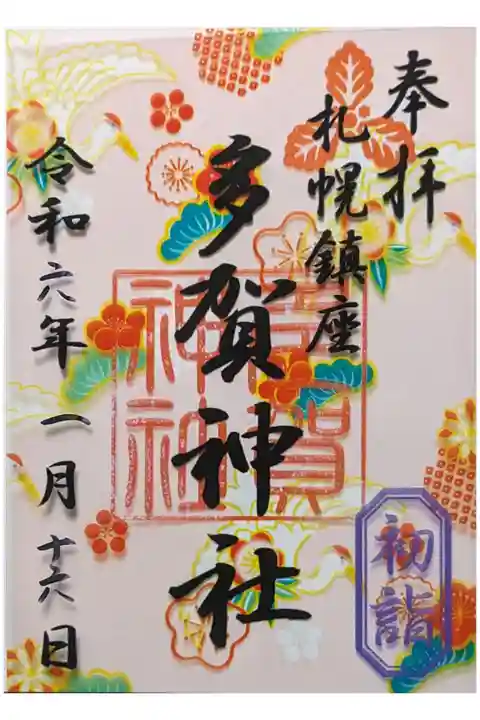 奉拝
札幌鎮座
多賀神社
令和六年一月十六日
初詣